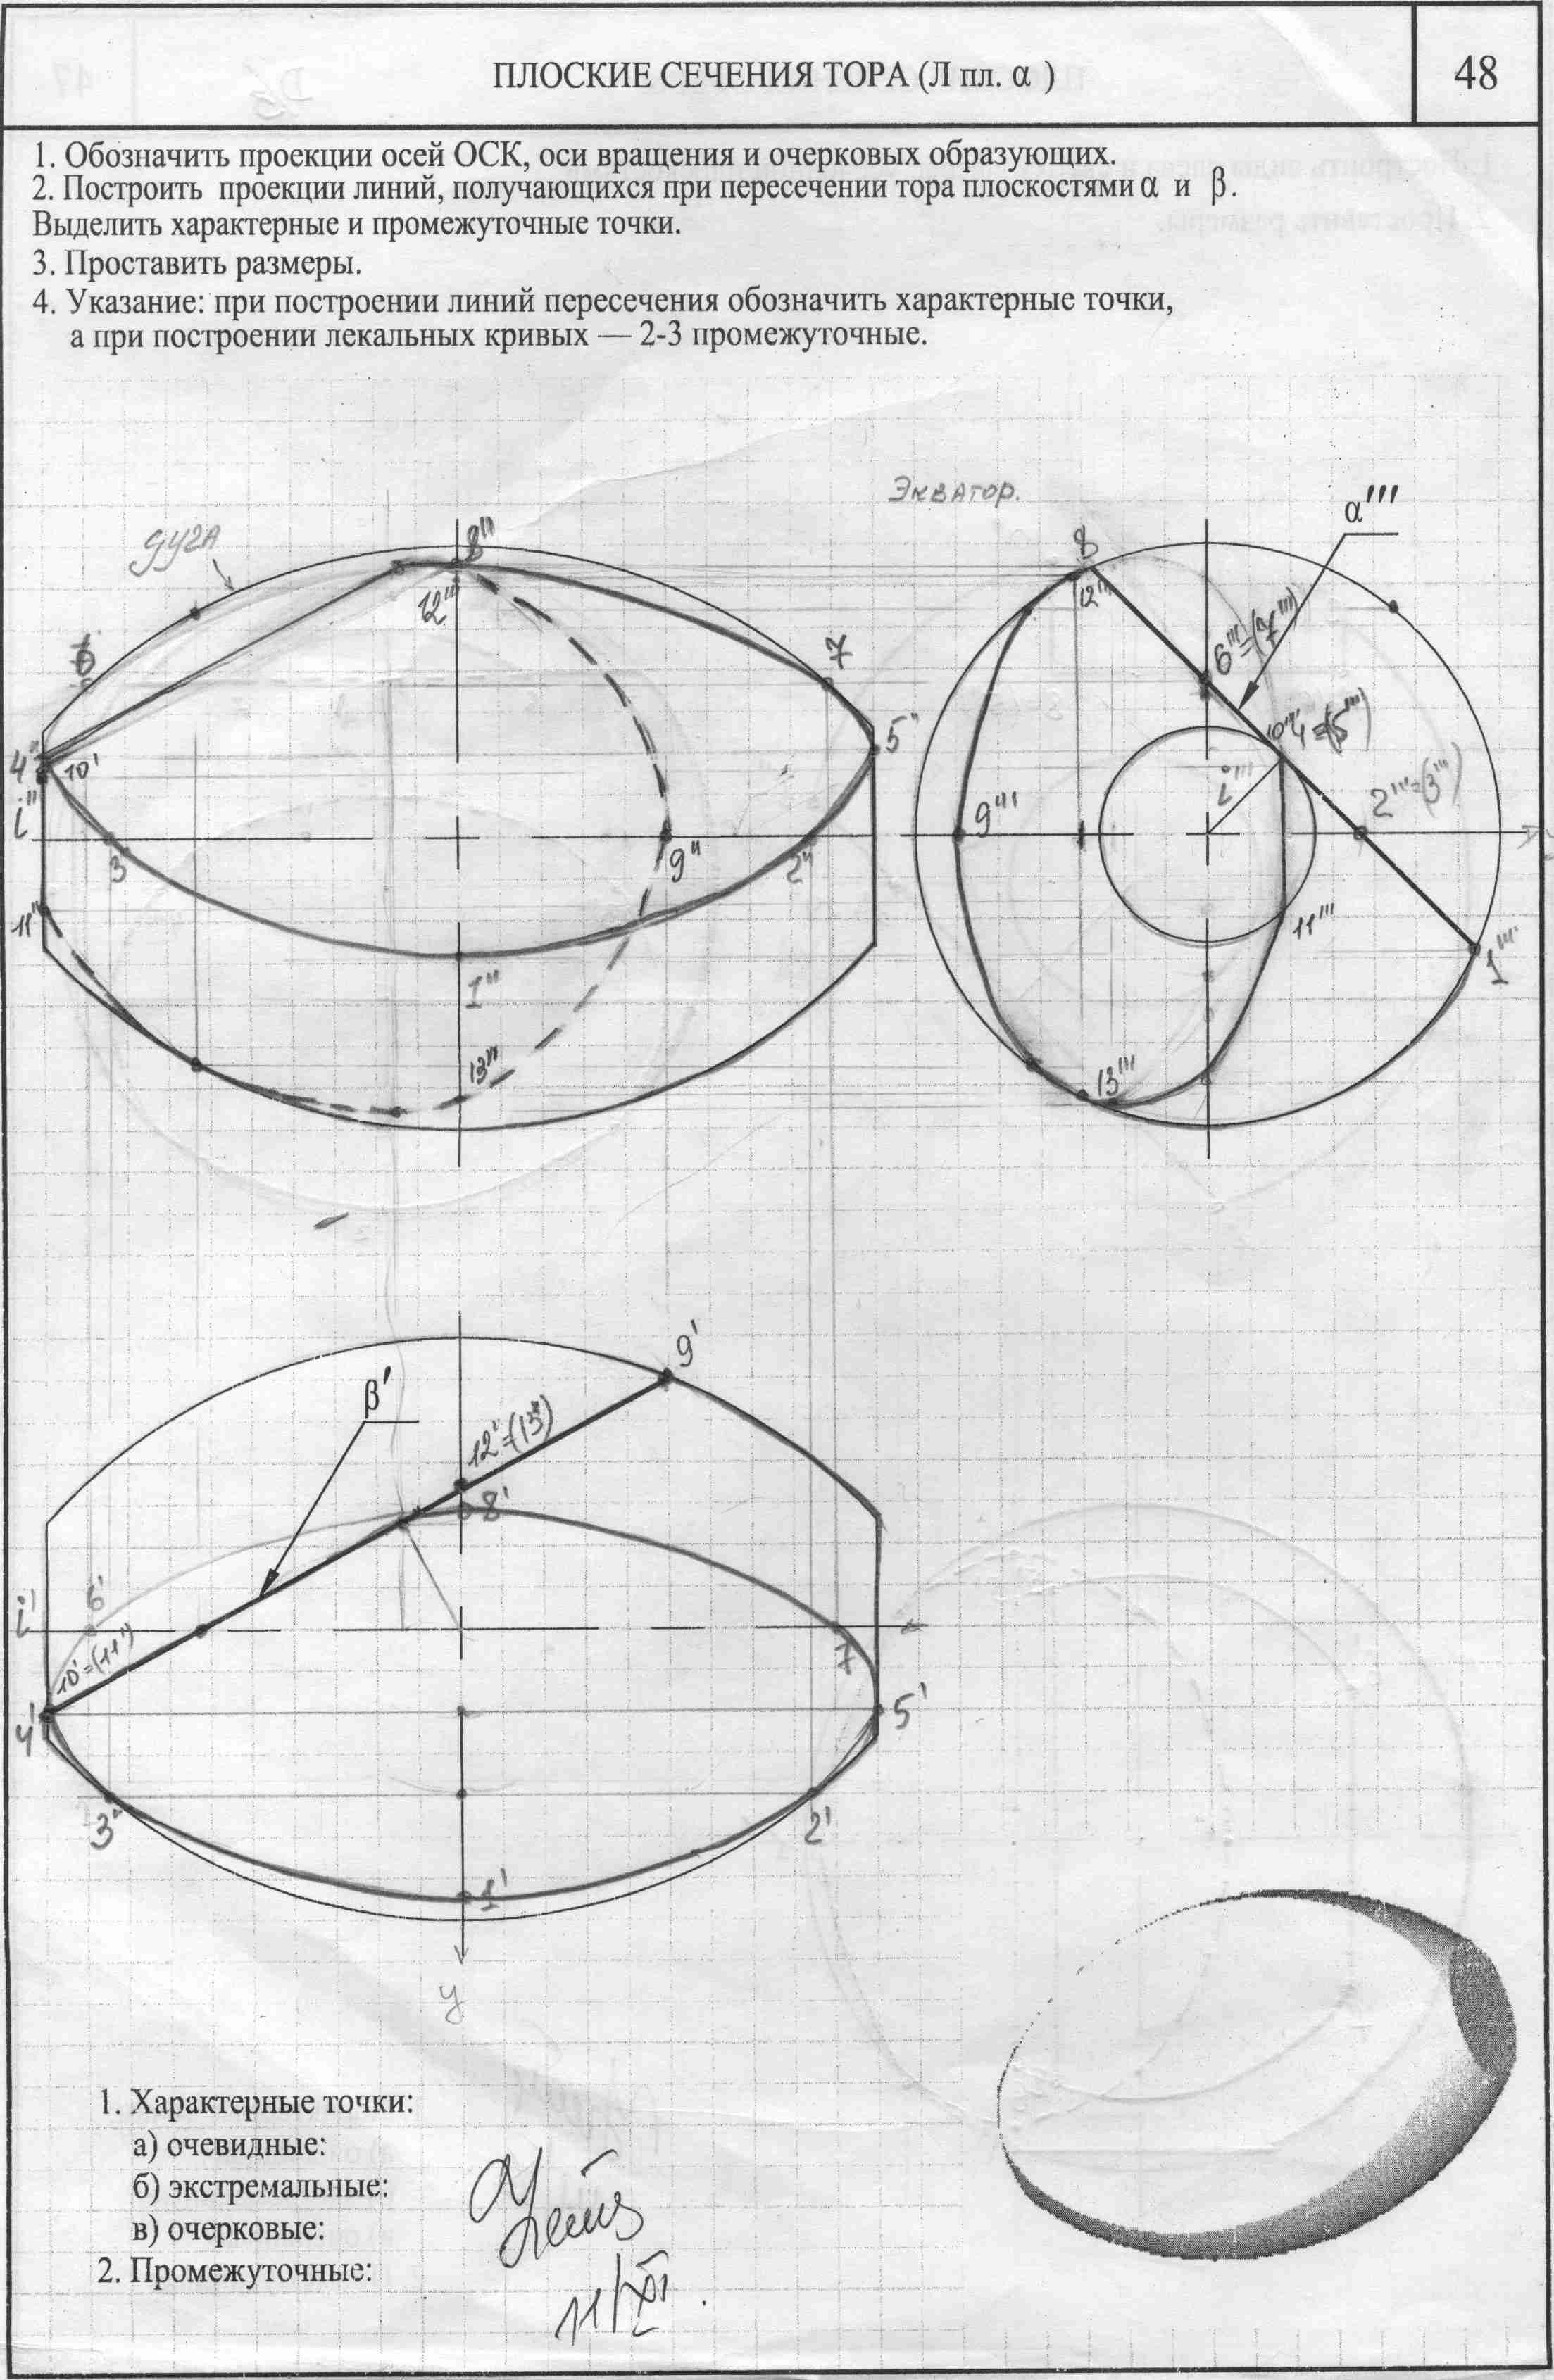 ПЛОСКИЕ СЕЧЕНИЯ ТОРА (Л пл. α )
48
1. Обозначить проекции осей ОСК, оси вращения и очерковых образующих.
2. Построить проекции линий, получающихся при пересечении тора плоскостями α и β.
Выделить характерные и промежуточные точки.
3. Проставить размеры.
4. Указание: при построении линий пересечения обозначить характерные точки,
а при построении лекальных кривых — 2-3 промежуточные.
Экватор.
α'''
дуга
8''
8
12'''
12'''
6'''≡(7''')
6
7
10''' 4≡(5''')
4''
10'
5''
i''
i'''
2'''≡(3''')
9'''
3''
9''
2''
11''
11'''
1'''
1''
13''
13'''
9'
β'
12'≡(13')
8'
6'
i'
10'≡(11')
7
4'
5'
3'
2'
1'
y
1. Характерные точки:
а) очевидные:
б) экстремальные:
в) очерковые:
2. Промежуточные:
11/XI.